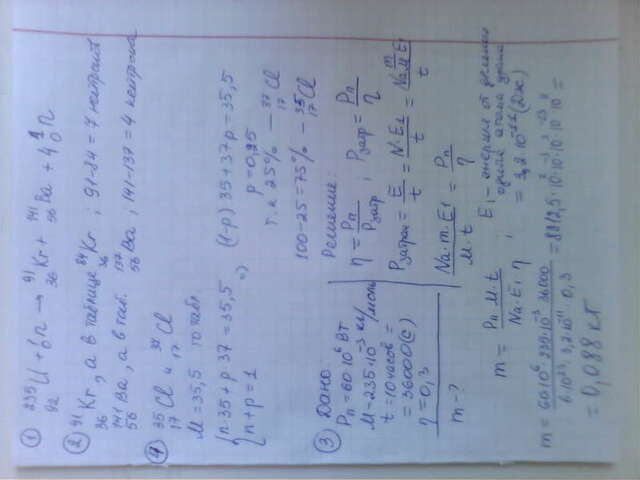 ① ²³⁵₉₂U + ¹₀n → ⁹¹₃₆Kr + ¹⁴¹₅₆Ba + 4¹₀n
② ⁹¹₃₆Kr, а в таблице ⁸⁴₃₆Kr; 91-84 = 7 нейтронов
¹⁴¹₅₆Ba, а в табл. ¹³⁷₅₆Ba; 141-137 = 4 нейтрона
④ ³⁵₁₇Cl и ³⁷₁₇Cl
M = 35,5 по табл.
{n·35 + p·37 = 35,5 =>
{n + p = 1
(1-p)35 + 37p = 35,5
p = 0,25
т.к 25% — ³⁷₁₇Cl
100-25 = 75% — ³⁵₁₇Cl
③ Дано
Pп = 60·10⁶ Вт
M = 235·10⁻³ кг/моль
t = 10 часов =
= 36000 (с)
η = 0,3
m - ?
Решение:
η = Pп/Pзатр ; Pзатр = Pп/η
Pзатрач = E/t = N·E1/t = Na m/M E1/t
Na·m·E1/M·t = Pп/η
m = Pп M·t/Na·E1 η ; E1 - энергия от деления
одного атома урана
= 3,2·10⁻¹¹ (Дж)
m = 60·10⁶ 235·10⁻³ 36000/6·10²³ 3,2·10⁻¹¹ 0,3 =
= 0,088 кг